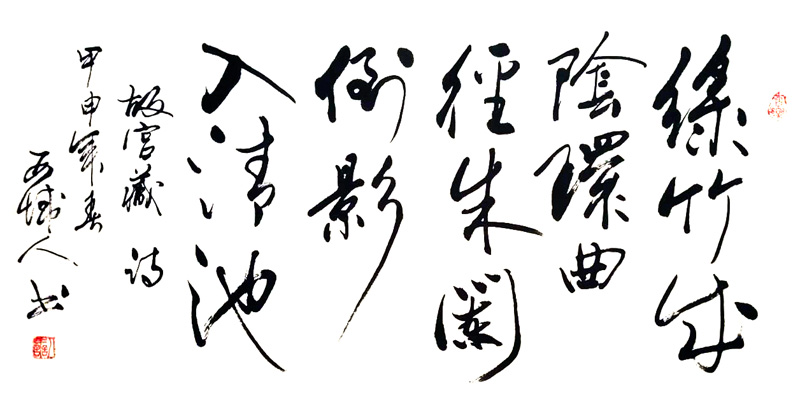 綠竹成
陰環曲
徑朱闌
倒影
入清池
故宮藏 诗
甲申年春
西城人书